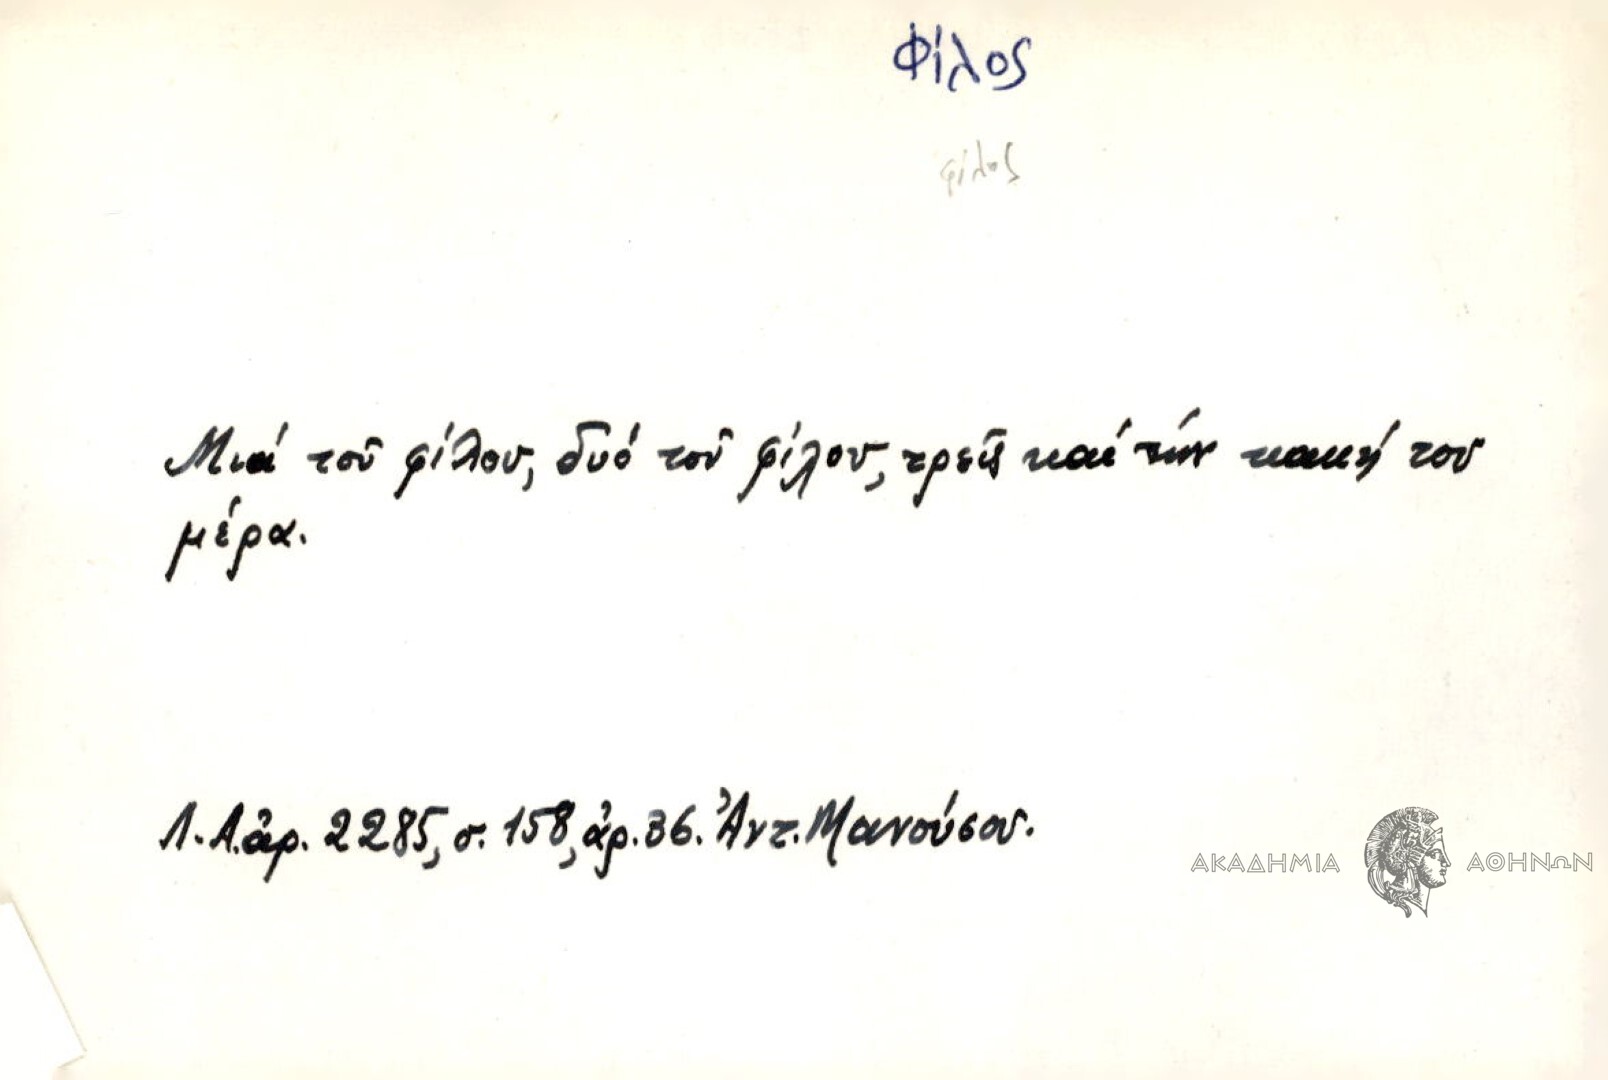 Φίλος
φίλος
Μιά τοῦ φίλου, δυό τοῦ φίλου, τρεῖς καί τήν κακή του
μέρα.
Λ.Α. ἀρ. 2285, σ. 158, ἀρ. 36. Ἀντ. Μανούσου.
ΑΚΑΔΗΜΙΑ ΑΘΗΝΩΝ